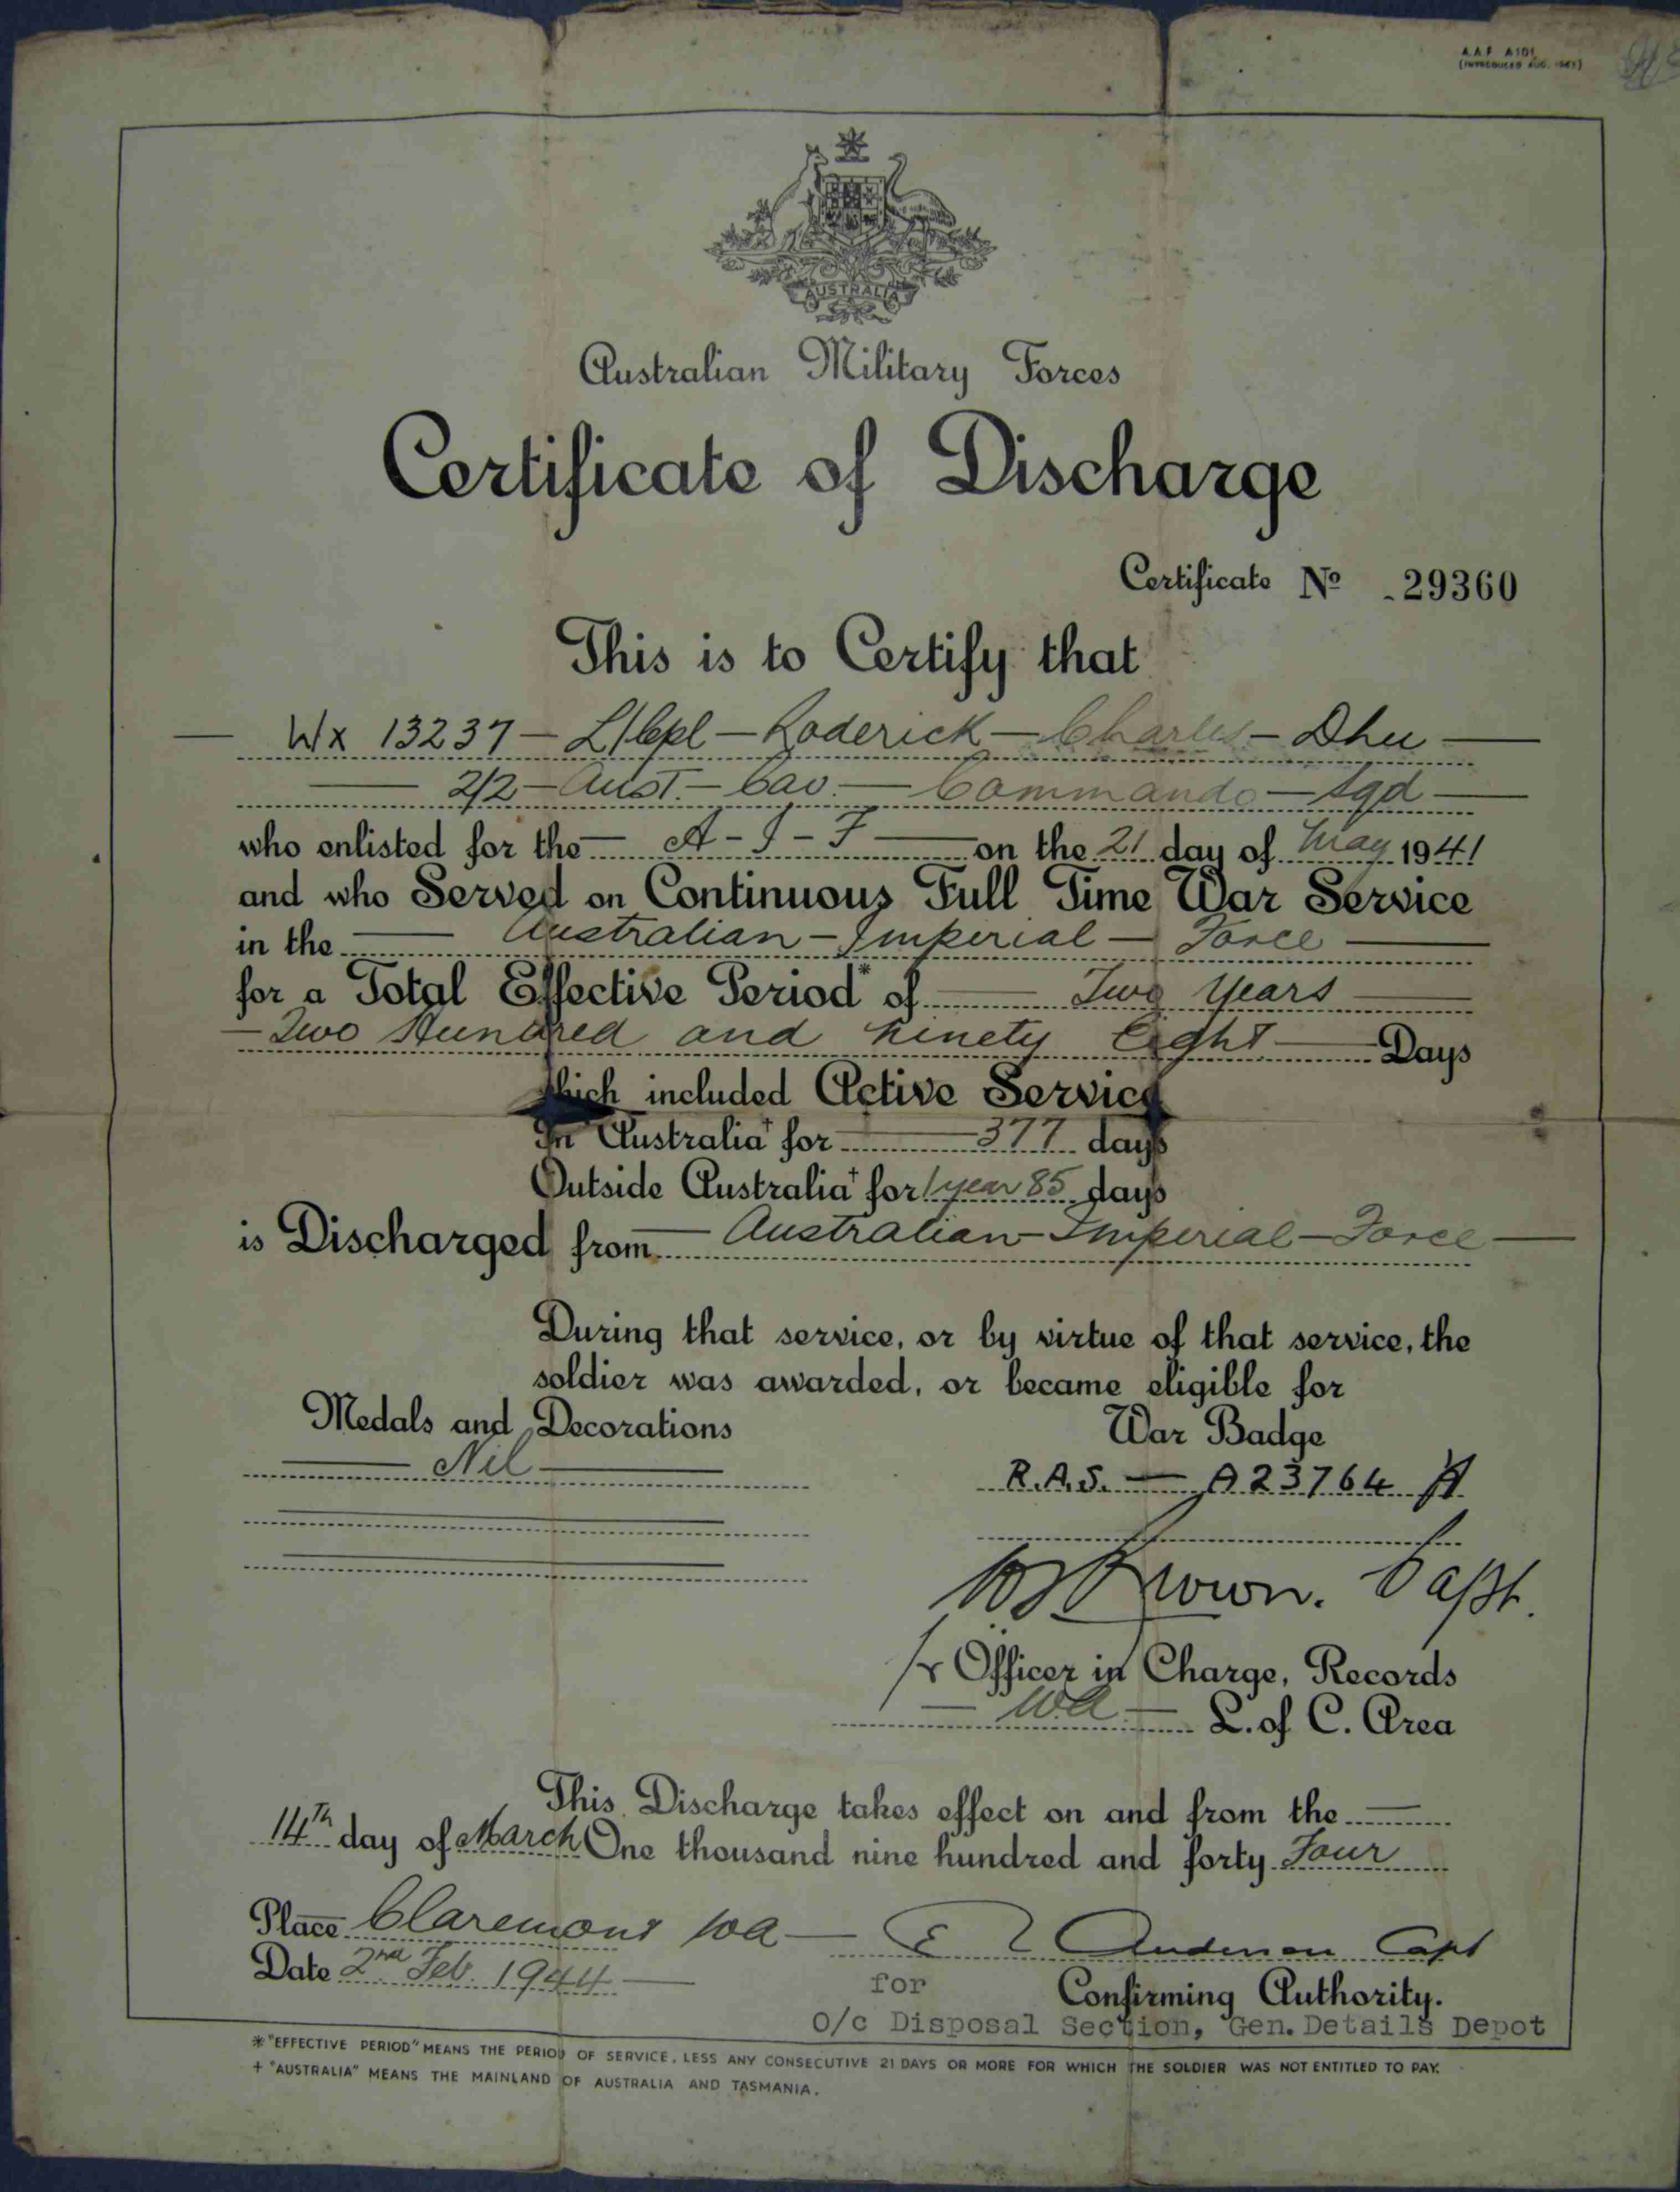 A.A.F. A101.
(INTRODUCED AUG. 1943)
AUSTRALIA
Australian Military Forces
Certificate of Discharge
Certificate No. 29360
This is to Certify that
— Wx 13237 — L/Cpl — Roderick — Charles — Dhu —
— 2/2 — Aust. — Cav. — Commando — Sqd —
who enlisted for the — A - I - F — on the 21 day of May 1941
and who Served on Continuous Full Time War Service
in the — Australian — Imperial — Force —
for a Total Effective Period* of — Two Years —
— Two Hundred and Ninety Eight — Days
which included Active Service
In Australia† for — 377 days
Outside Australia† for 1 year 85 days
is Discharged from — Australian — Imperial — Force —
During that service, or by virtue of that service, the
soldier was awarded, or became eligible for
Medals and Decorations
War Badge
— Nil —
R.A.S. — A23764
Brown. Capt.
for Officer in Charge, Records
— WA — L. of C. Area
This Discharge takes effect on and from the —
14th day of March One thousand nine hundred and forty Four
Place Claremont WA —
E Anderson Capt
Date 2nd Feb. 1944 —
for
Confirming Authority.
O/c Disposal Section, Gen. Details Depot
* "EFFECTIVE PERIOD" MEANS THE PERIOD OF SERVICE, LESS ANY CONSECUTIVE 21 DAYS OR MORE FOR WHICH THE SOLDIER WAS NOT ENTITLED TO PAY.
† "AUSTRALIA" MEANS THE MAINLAND OF AUSTRALIA AND TASMANIA.